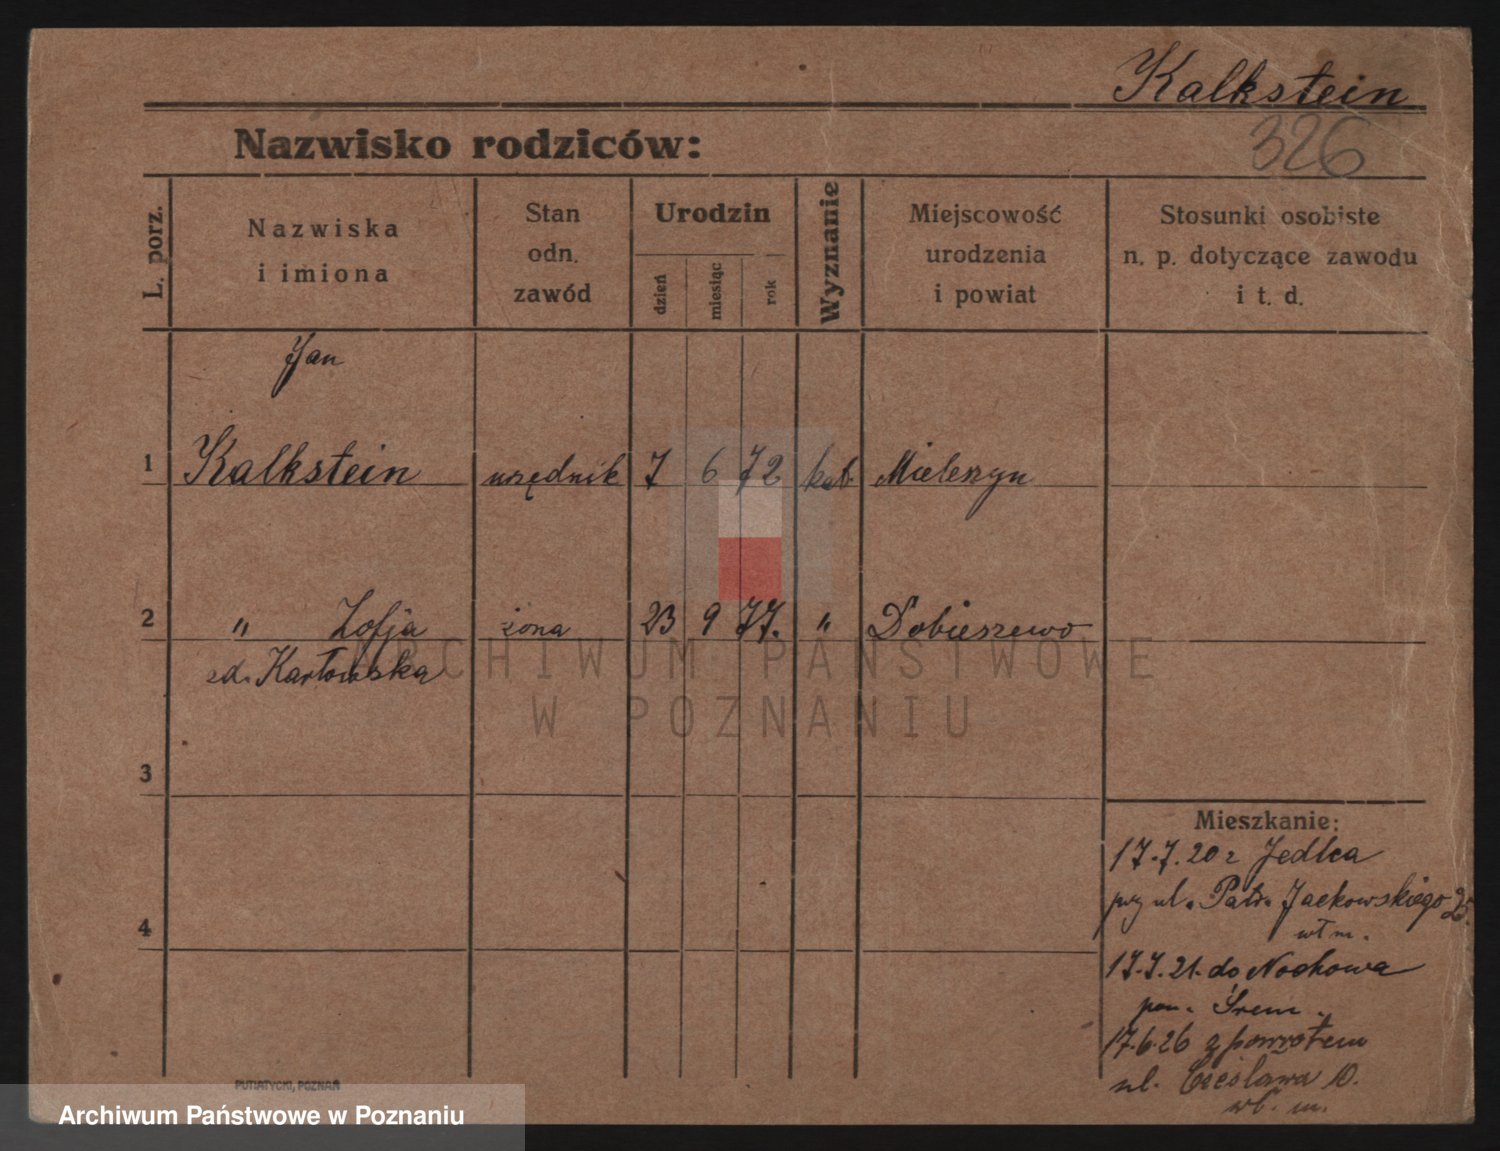 Kalkstein
326
Nazwisko rodziców:
L. porz.
Nazwiska
i imiona
Stan
odn.
zawód
Urodzin
dzień
miesiąc
rok
Wyznanie
Miejscowość
urodzenia
i powiat
Stosunki osobiste
n. p. dotyczące zawodu
i t. d.
Jan
1 Kalkstein urzędnik 7 6 72 kat. Mieleszyn
2 " Zofja żona 23 9 77. " Dobieszewo
zd. Karłowska
ARCHIWUM PAŃSTWOWE
W POZNANIU
3
4
Mieszkanie:
17.7.20 z Jedlca
przy ul. Patr. Jackowskiego 25.
wł m.
17.7.21. do Nochowa
pow. Śrem.
17.6.26 z powrotem
ul. Czesława 10.
wł. m.
PUTIATYCKI, POZNAŃ
Archiwum Państwowe w Poznaniu